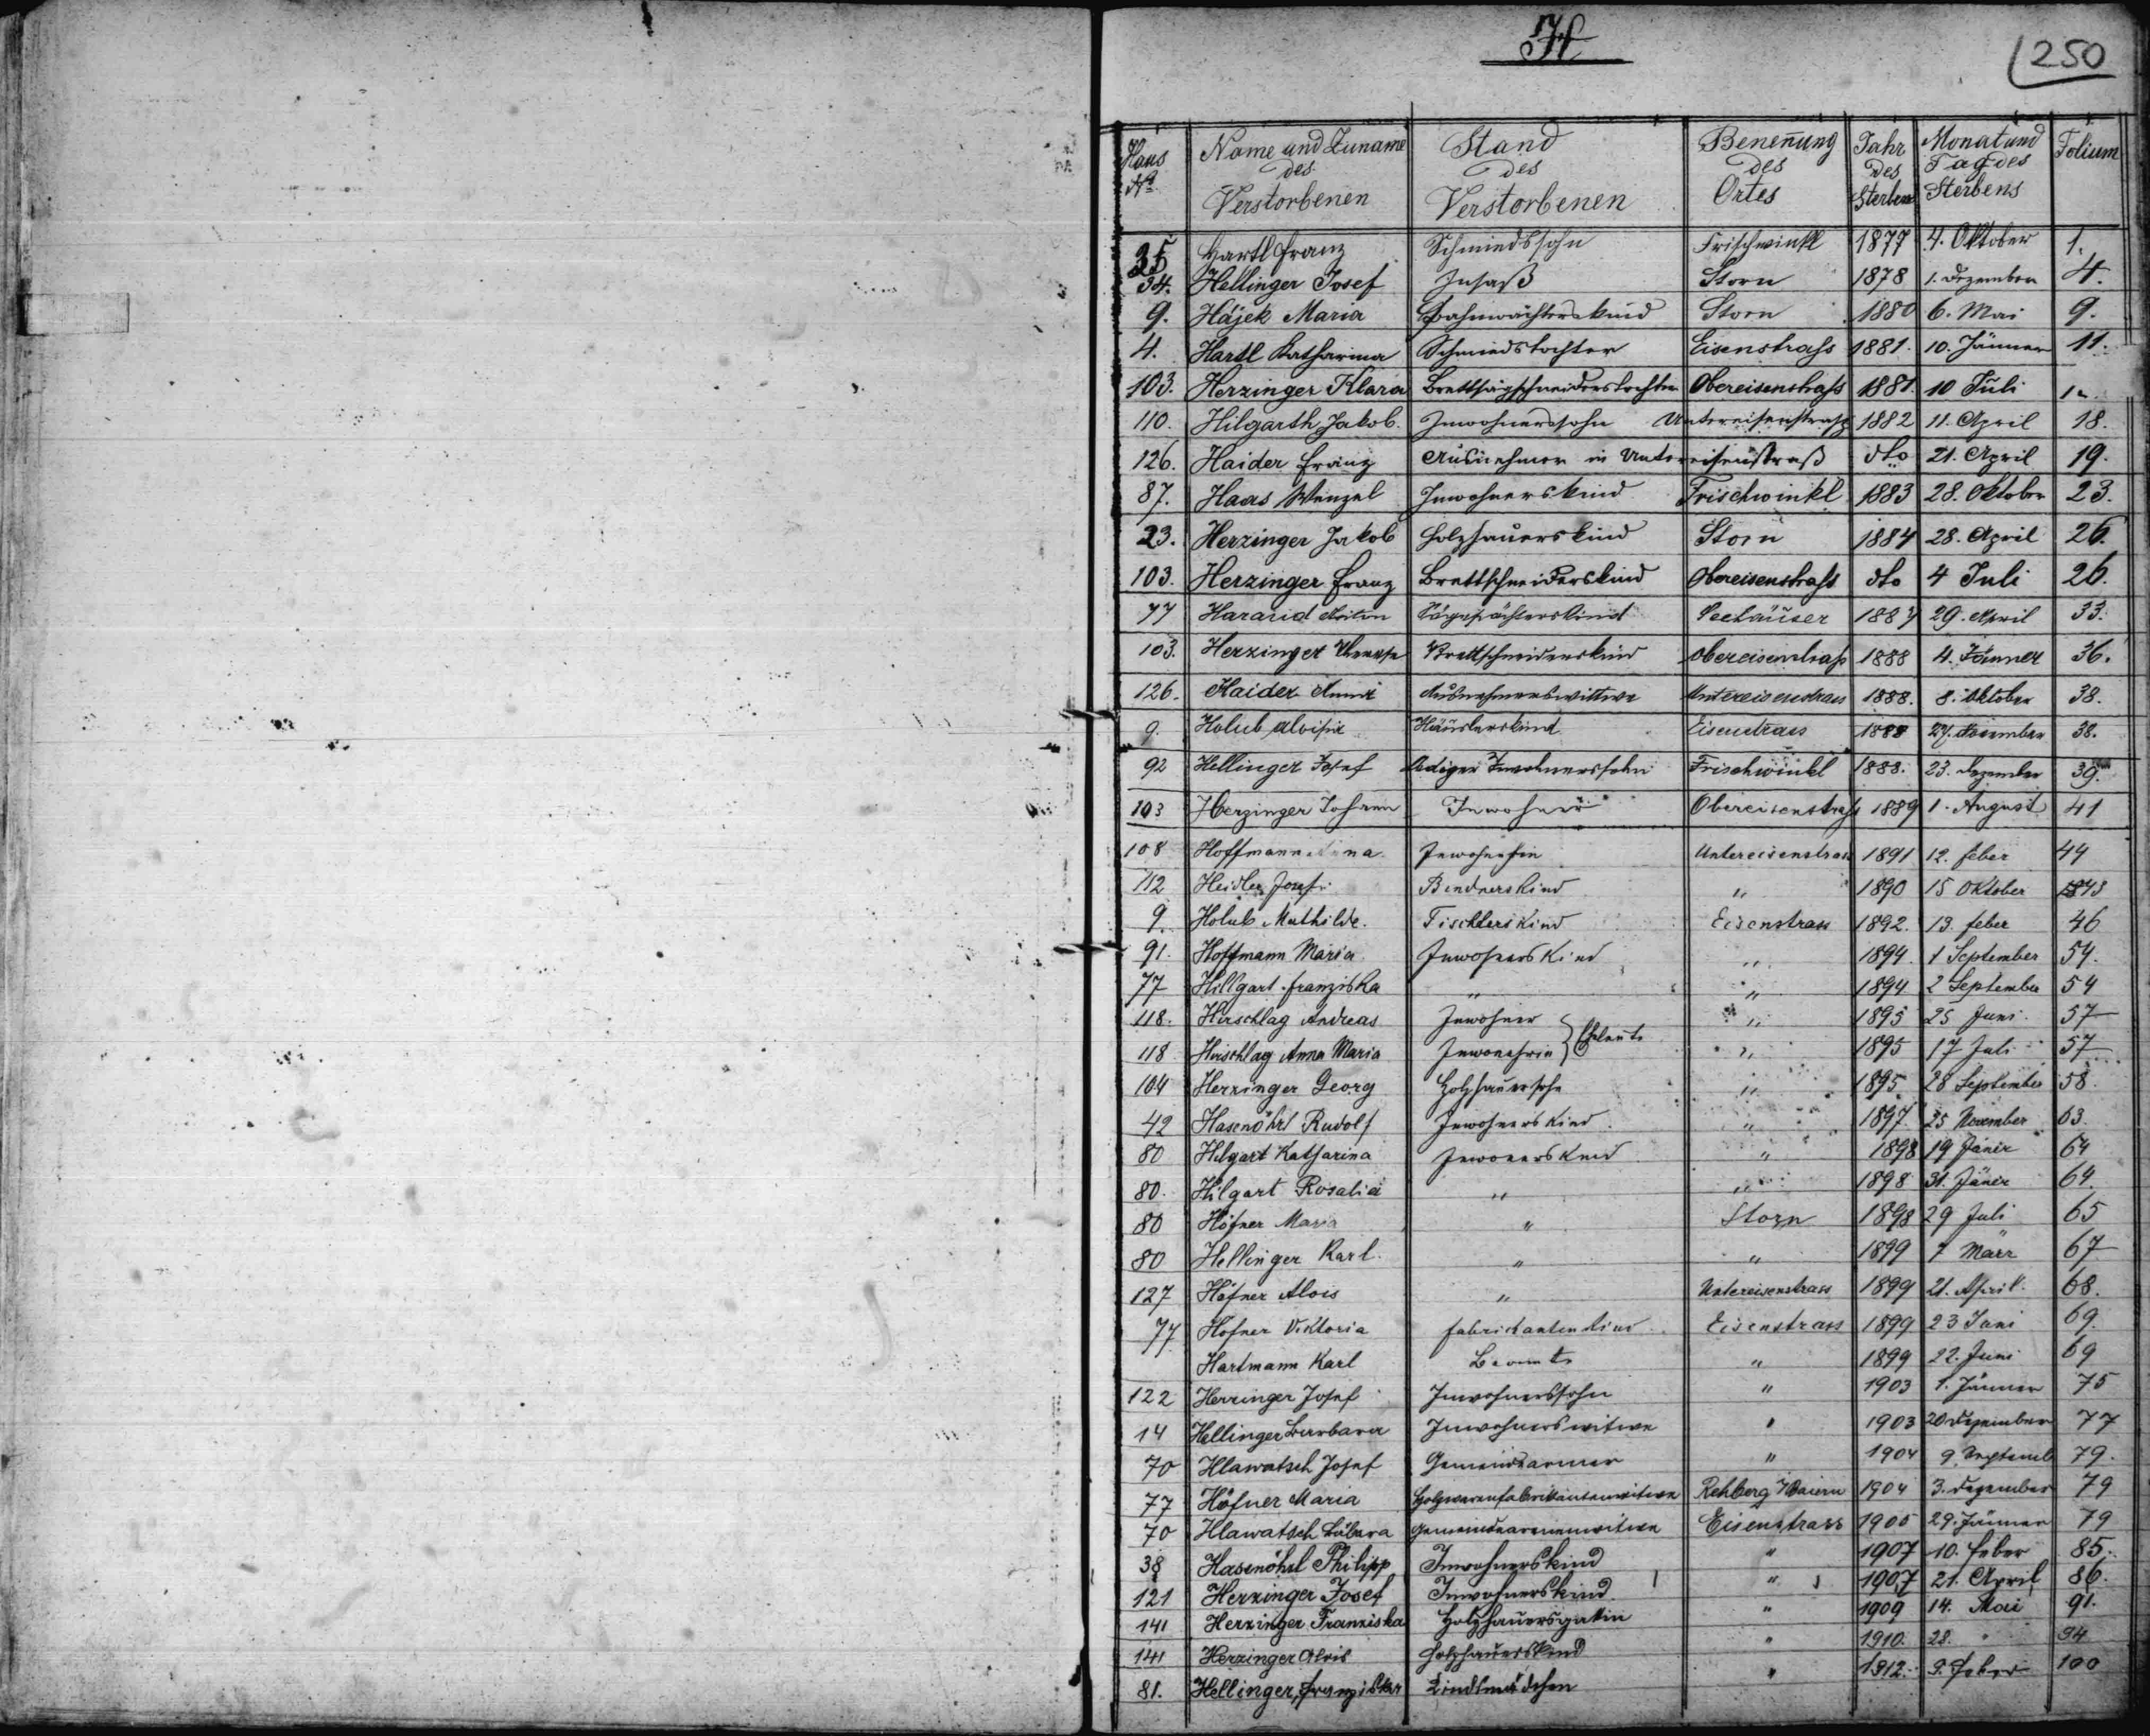 H
250
Haus Nº | Name und Zuname des Verstorbenen | Stand des Verstorbenen | Benen̄ung des Ortes | Jahr des Sterbens | Monat und Tag des Sterbens | Folium
35 Hartl Franz Schmiedssohn Frischwinkl 1877 4. Oktober 1.
34. Hellinger Josef Insaß Storn 1878 1. Dezember 4.
9. Hájek Maria Bahnwächterskind Storn 1880 6. Mai 9.
4. Hartl Katharina Schmiedstochter Eisenstrass 1881. 10. Jänner 11.
103. Herzinger Klara Brettsägschneiderstochter Obereisenstrass 1881. 10 Juli
110. Hilgarth Jakob. Inwohnerssohn Untereisenstrass 1882 11. April 18.
126. Haider Franz Ausnehmer in Untereisenstraß dto 21. April 19.
87. Haas Wenzel Inwohnerskind Frischwinkl 1883 28. Oktober 23.
23. Herzinger Jakob Holzhauerskind Storn 1884 28. April 26.
103. Herzinger Franz Brettschneiderskind Obereisenstrass dto 4 Juli 26.
77 Anton Sägepächterskind Seehäuser 1887 29. April 33.
103. Herzinger Therese Brettschneiderskind Obereisenstrass 1888 4. Jänner 36.
126. Haider Anna Ausnehmerswittwe Untereisenstrass 1888. 8. Oktober 38.
9. Holub Aloisia Häuslerskind Eisenstrass 1888 27. November 38.
92 Hellinger Josef lediger Inwohnerssohn Frischwinkl 1888. 23. Dezember 39.
103 Herzinger Johann Inwohner Obereisenstrass 1889 1. August 41
108 Hoffmann Inwohnerin Untereisenstrass 1891 12. feber 44
112 Heidler Josef Bindnerskind " 1890 15 Oktober 43
9. Holub Mathilde. Tischlerskind Eisenstrass 1892. 13. feber 46
91. Hoffmann Maria Inwohnerskind " 1894. 1 September 54.
77 Hillgart Franziska " " 1894. 2 September 54
118. Hirschlag Andreas Inwohner } Eheleute " 1895 25 Juni 57
118 Hirschlag Anna Maria Inwonehrin " 1895 17 Juli 57
104 Herzinger Georg Holzhauersohn " 1895. 28 September 58.
42 Hasenöhrl Rudolf Inwohnerskind " 1897. 25 November 63.
80 Hilgart Katharina Inwonerskind " 1898 19 Jäner 64
80. Hilgart Rosalia " " 1898 31. Jäner 64.
80 Höfner Maria " Storn 1898 29 Juli 65
80 Hellinger Karl. " " 1899 7 März 67
127 Höfner Alois " Untereisenstrass 1899 21. April. 68.
77. Höfner Viktoria Fabrikantenkind Eisenstrass 1899 23 Juni 69.
Hartmann Karl Beamte " 1899 22. Juni 69
122 Herzinger Josef Inwohnerssohn " 1903 1. Jänner 75
14 Hellinger Barbara Inwohnerswitwe " 1903 20 Dezember 77
70 Hlawatsch Josef Gemeindearmer " 1904 9. Septemb 79.
77 Höfner Maria Holzwarenfabrikantenwitwe Rehberg i/Baiern 1904 3. Dezember 79
70 Hlawatsch Bábara Gemeindearmenwitwe Eisenstrass 1905 29. Jänner 79
38 Hasenöhrl Philipp Inwohnerskind " 1907 10. feber 85.
121 Herzinger Josef Inwohnerskind " 1907 21. April 86.
141 Herzinger Franziska Holzhauersgattin " 1909 14. Mai 91.
141 Herzinger Alois Holzhauerskind " 1910. 28. " 94
81. Hellinger, Franziska Kindsmädchen " 1912. 9. Feber 100